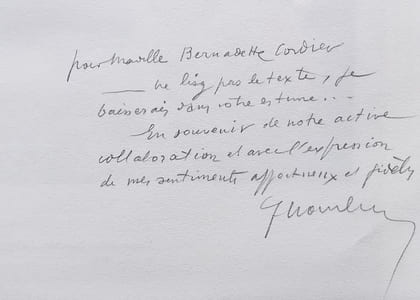 pour Mademoiselle Bernadette Cordier
— ne lisez pas le texte, je
baisserais dans votre estime...
En souvenir de notre active
collaboration et avec l'expression
de mes sentiments affectueux et fidèles